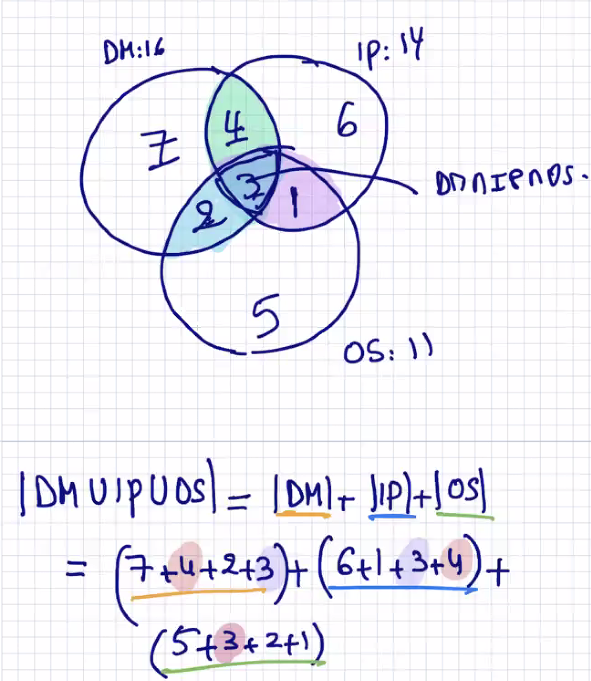 DM:16
IP: 14
7
4
6
3
DM∩IP∩OS.
2
1
5
OS: 11
|DM∪IP∪OS| = |DM| + |IP| + |OS|
= (7+4+2+3) + (6+1+3+4) +
(5+3+2+1)